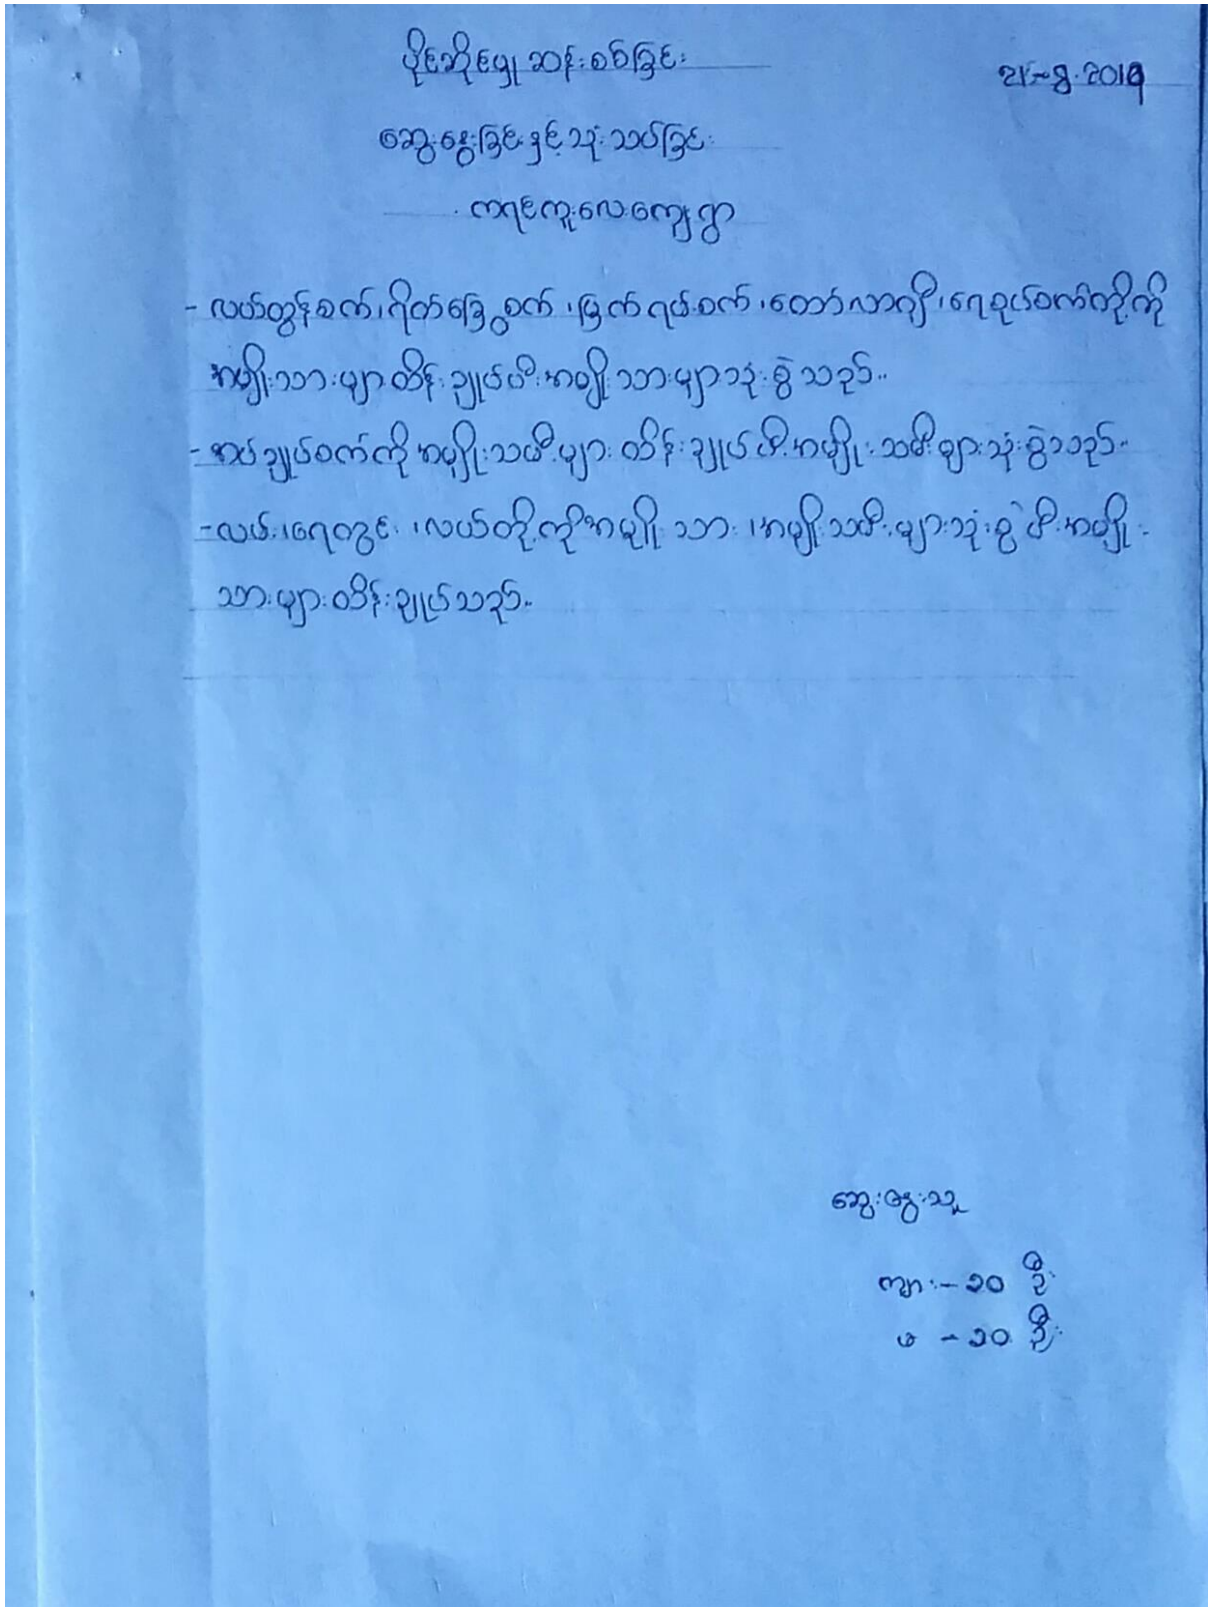 ပိုင်ဆိုင်မှု ဆန်းစစ်ခြင်း
ဆွေးနွေးခြင်းနှင့် သုံးသပ်ခြင်း
ကရင်ကူးလေးကျေးရွာ
- လယ်ထွန်စက်၊ ရိတ်ခြွေစက်၊ မြက်ရယ်စက်၊ တော်လာဂျီ၊ ရေစုပ်စက်တို့ကို
အမျိုးသားများ ထိန်းချုပ်ပီး အမျိုးသားများသုံးစွဲသည်။
- အပ်ချုပ်စက်ကို အမျိုးသမီးများ ထိန်းချုပ်ပီး အမျိုးသမီးများသုံးစွဲသည်။
- လမ်း၊ ရေတွင်း၊ လယ်တို့ကို အမျိုးသား၊ အမျိုးသမီးများသုံးစွဲပီး အမျိုး
သားများထိန်းချုပ်သည်။
ဆွေးနွေးသူ
ကျား - ၁၀ ဦး
မ - ၁၀ ဦး